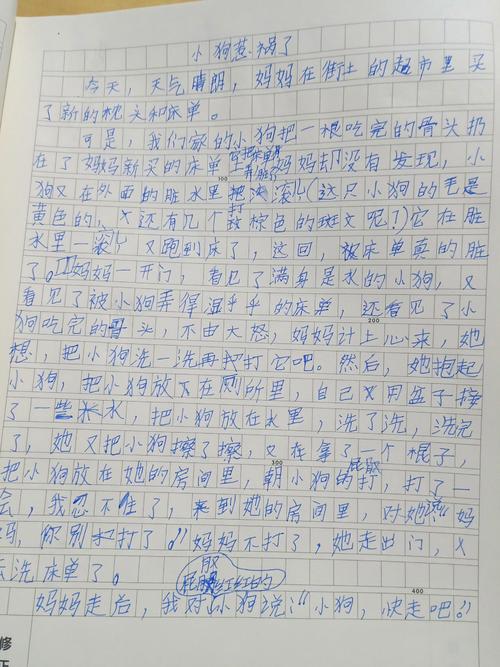 小狗惹祸了
今天，天气晴朗，妈妈在街上的超市里买
了新的枕头和床单。
可是，我们家的小狗把一根吃完的骨头扔
在了妈妈新买的床单上，妈妈却没有发现，小
狗又在外面的脏水里打滚儿（这只小狗的毛是
黄色的，还有几个棕色的斑文呢！）它在脏
水里一滚儿，又跑到床了，这回，被床单真的脏
了。妈妈一开门，看见了满身是水的小狗，又
看见了被小狗弄得湿乎乎的床单，还看见了小
狗吃完的骨头，不由大怒，妈妈计上心来，她
想，把小狗洗一洗再打它吧。然后，她抱起
小狗，把小狗放在厕所里，自己又用盆子接
了一些水，把小狗放在水里，洗了洗，洗完
了，她又把小狗擦了擦，又在拿了一个棍子，
把小狗放在她的房间里，朝小狗的屁股打，打了一
会，我忍不住了，来到她的房间里，对她说“妈
妈，你别打了。”妈妈不打了，她走出门，
去洗床单了。
屁股红红的
妈妈走后，我对小狗说：“小狗，快走吧！”
100
200
300
400
修
正